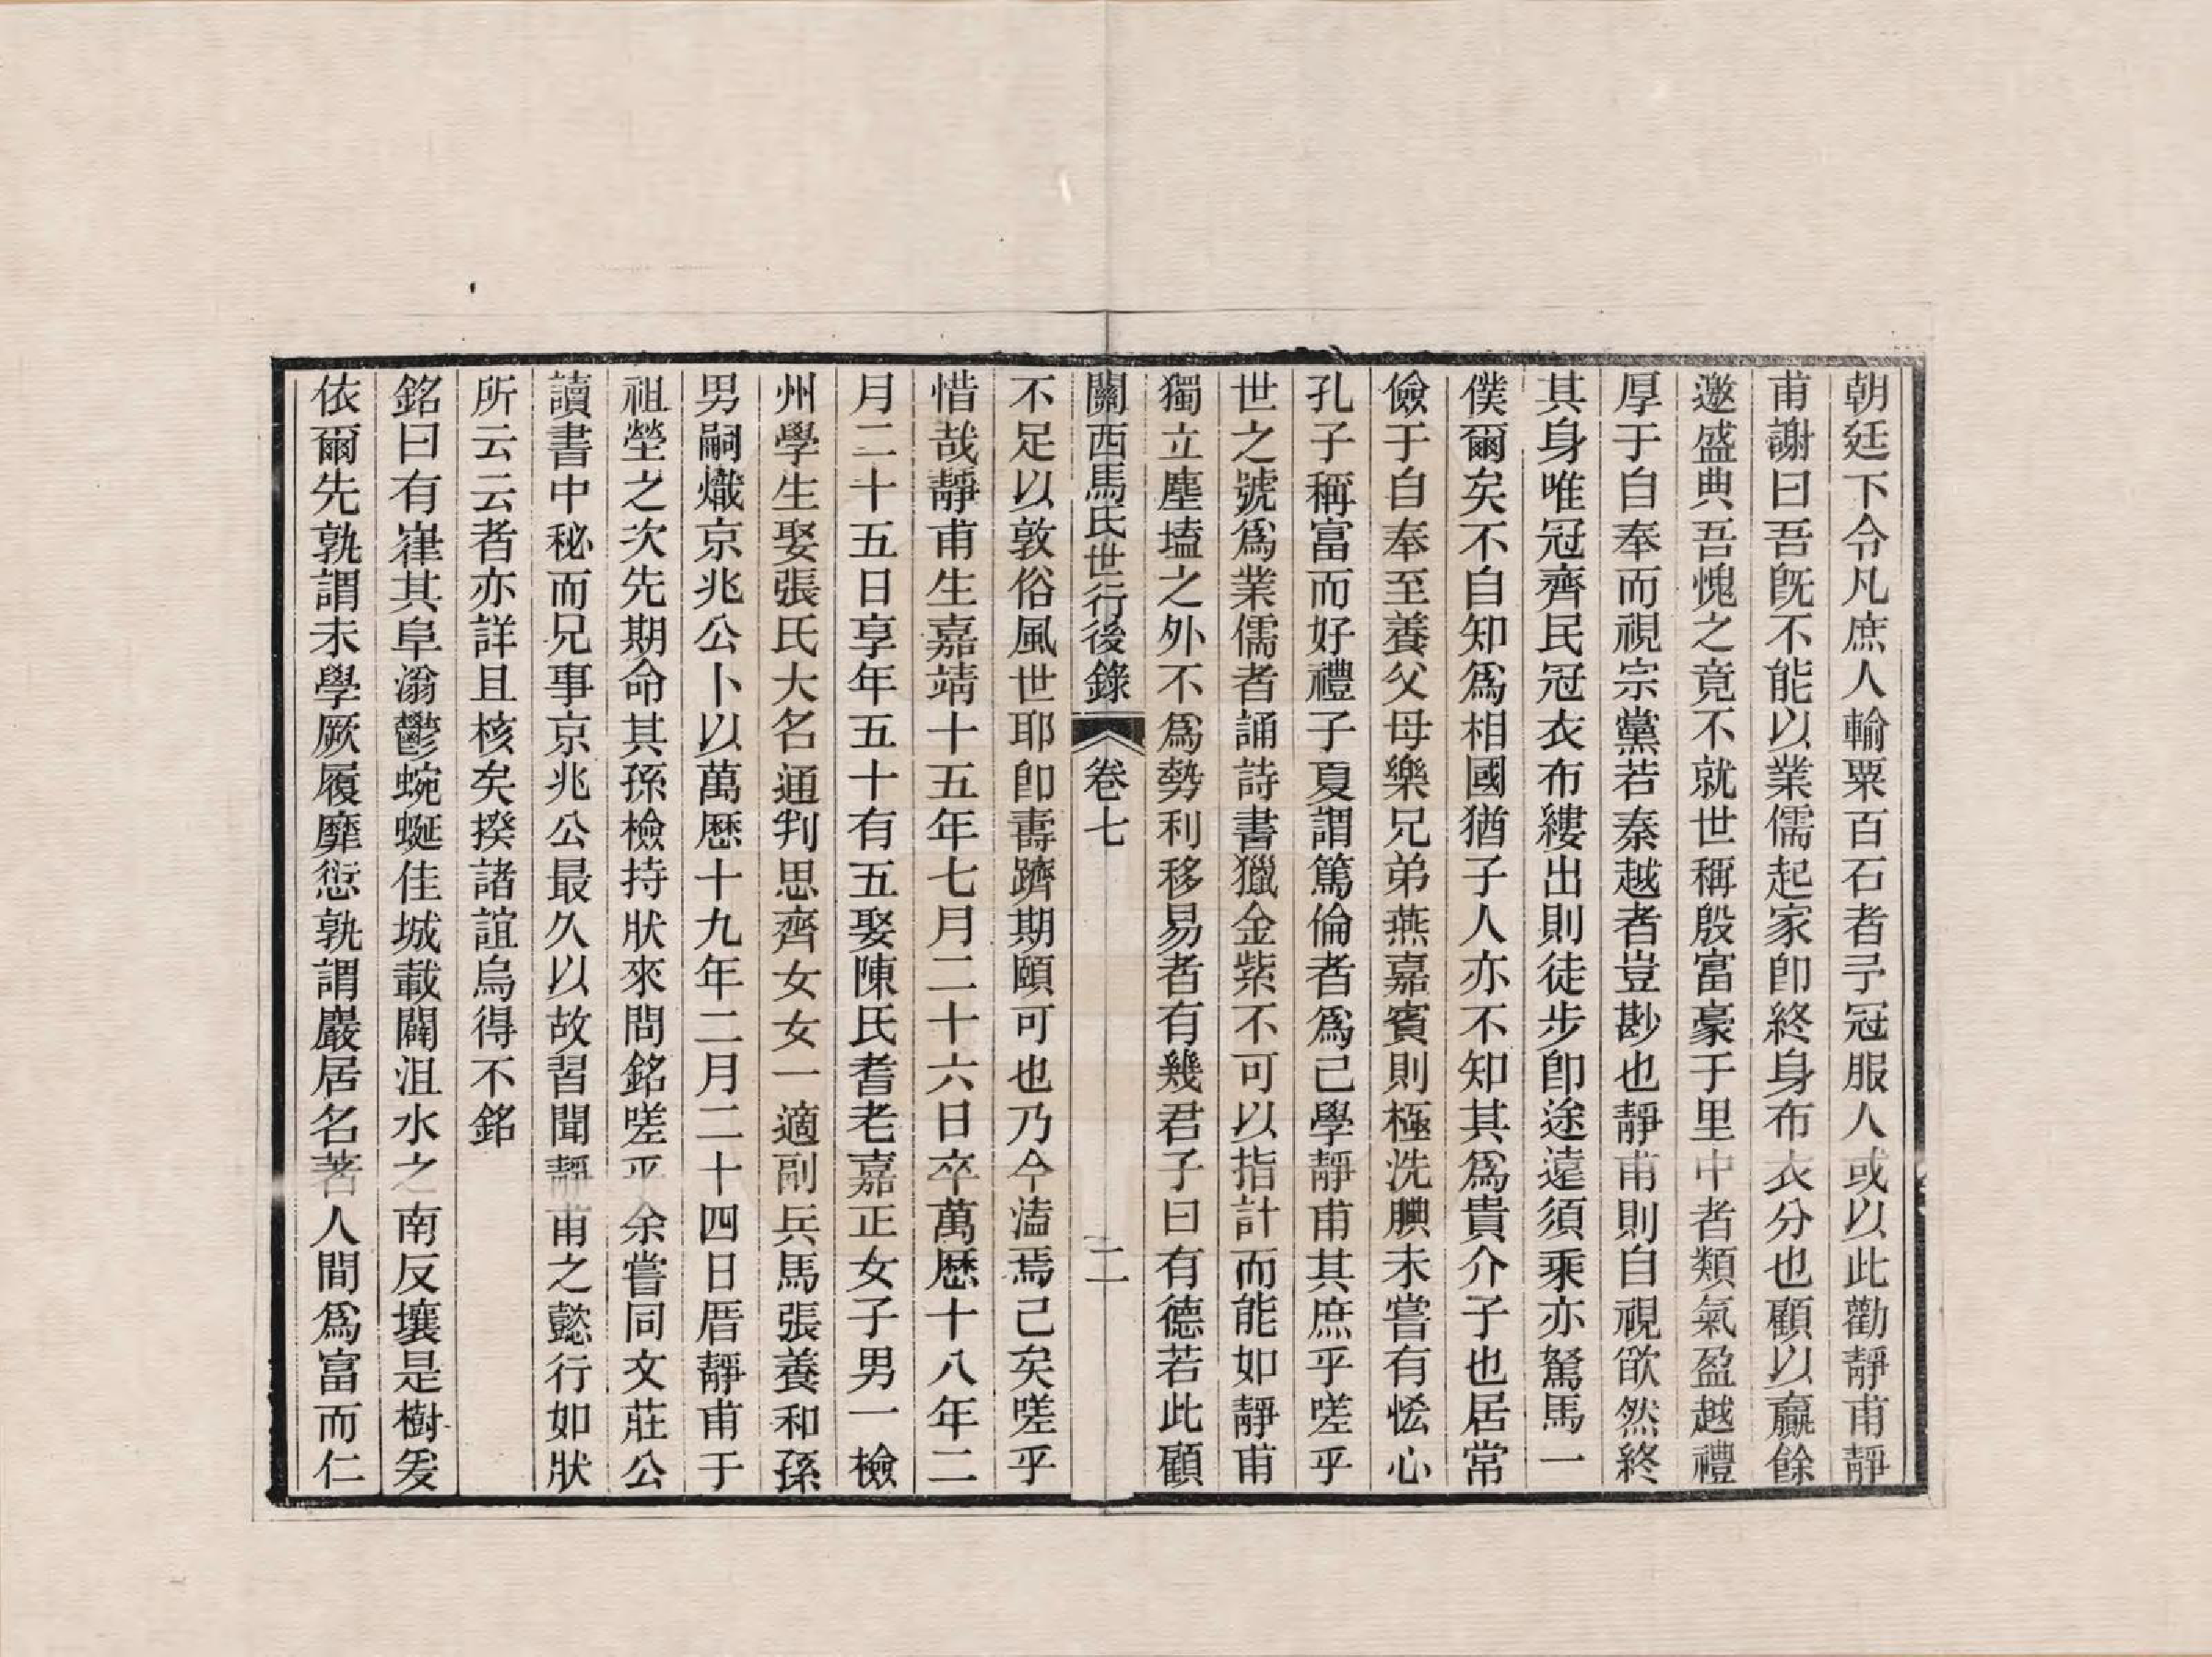 朝廷下令凡庶人輸粟百石者予冠服人或以此勸靜甫靜
甫謝曰吾旣不能以業儒起家卽終身布衣分也顧以羸餘
邀盛典吾愧之竟不就世稱殷富豪于里中者類氣盈越禮
厚于自奉而視宗黨若秦越者豈尠也靜甫則自視欿然終
其身唯冠齊民冠衣布縷出則徒步卽途遠須乘亦駑馬一
僕爾矣不自知爲相國猶子人亦不知其爲貴介子也居常
儉于自奉至養父母樂兄弟燕嘉賓則極洗腆未嘗有恡心
孔子稱富而好禮子夏謂篤倫者爲己學靜甫其庶乎嗟乎
世之號爲業儒者誦詩書獵金紫不可以指計而能如靜甫
獨立塵壒之外不爲勢利移易者有幾君子曰有德若此顧
關西馬氏世行後錄 卷七 二
不足以敦俗風世耶卽壽躋期頤可也乃今溘焉已矣嗟乎
惜哉靜甫生嘉靖十五年七月二十六日卒萬歷十八年二
月二十五日享年五十有五娶陳氏耆老嘉正女子男一檢
州學生娶張氏大名通判思齊女女一適副兵馬張養和孫
男嗣熾京兆公卜以萬歷十九年二月二十四日厝靜甫于
祖塋之次先期命其孫檢持狀來問銘嗟乎余嘗同文莊公
讀書中秘而兄事京兆公最久以故習聞靜甫之懿行如狀
所云云者亦詳且核矣揆諸誼烏得不銘
銘曰有嵂其阜滃鬱蜿蜒佳城載闢沮水之南反壤是樹爰
依爾先孰謂未學厥履靡愆孰謂巖居名著人間爲富而仁